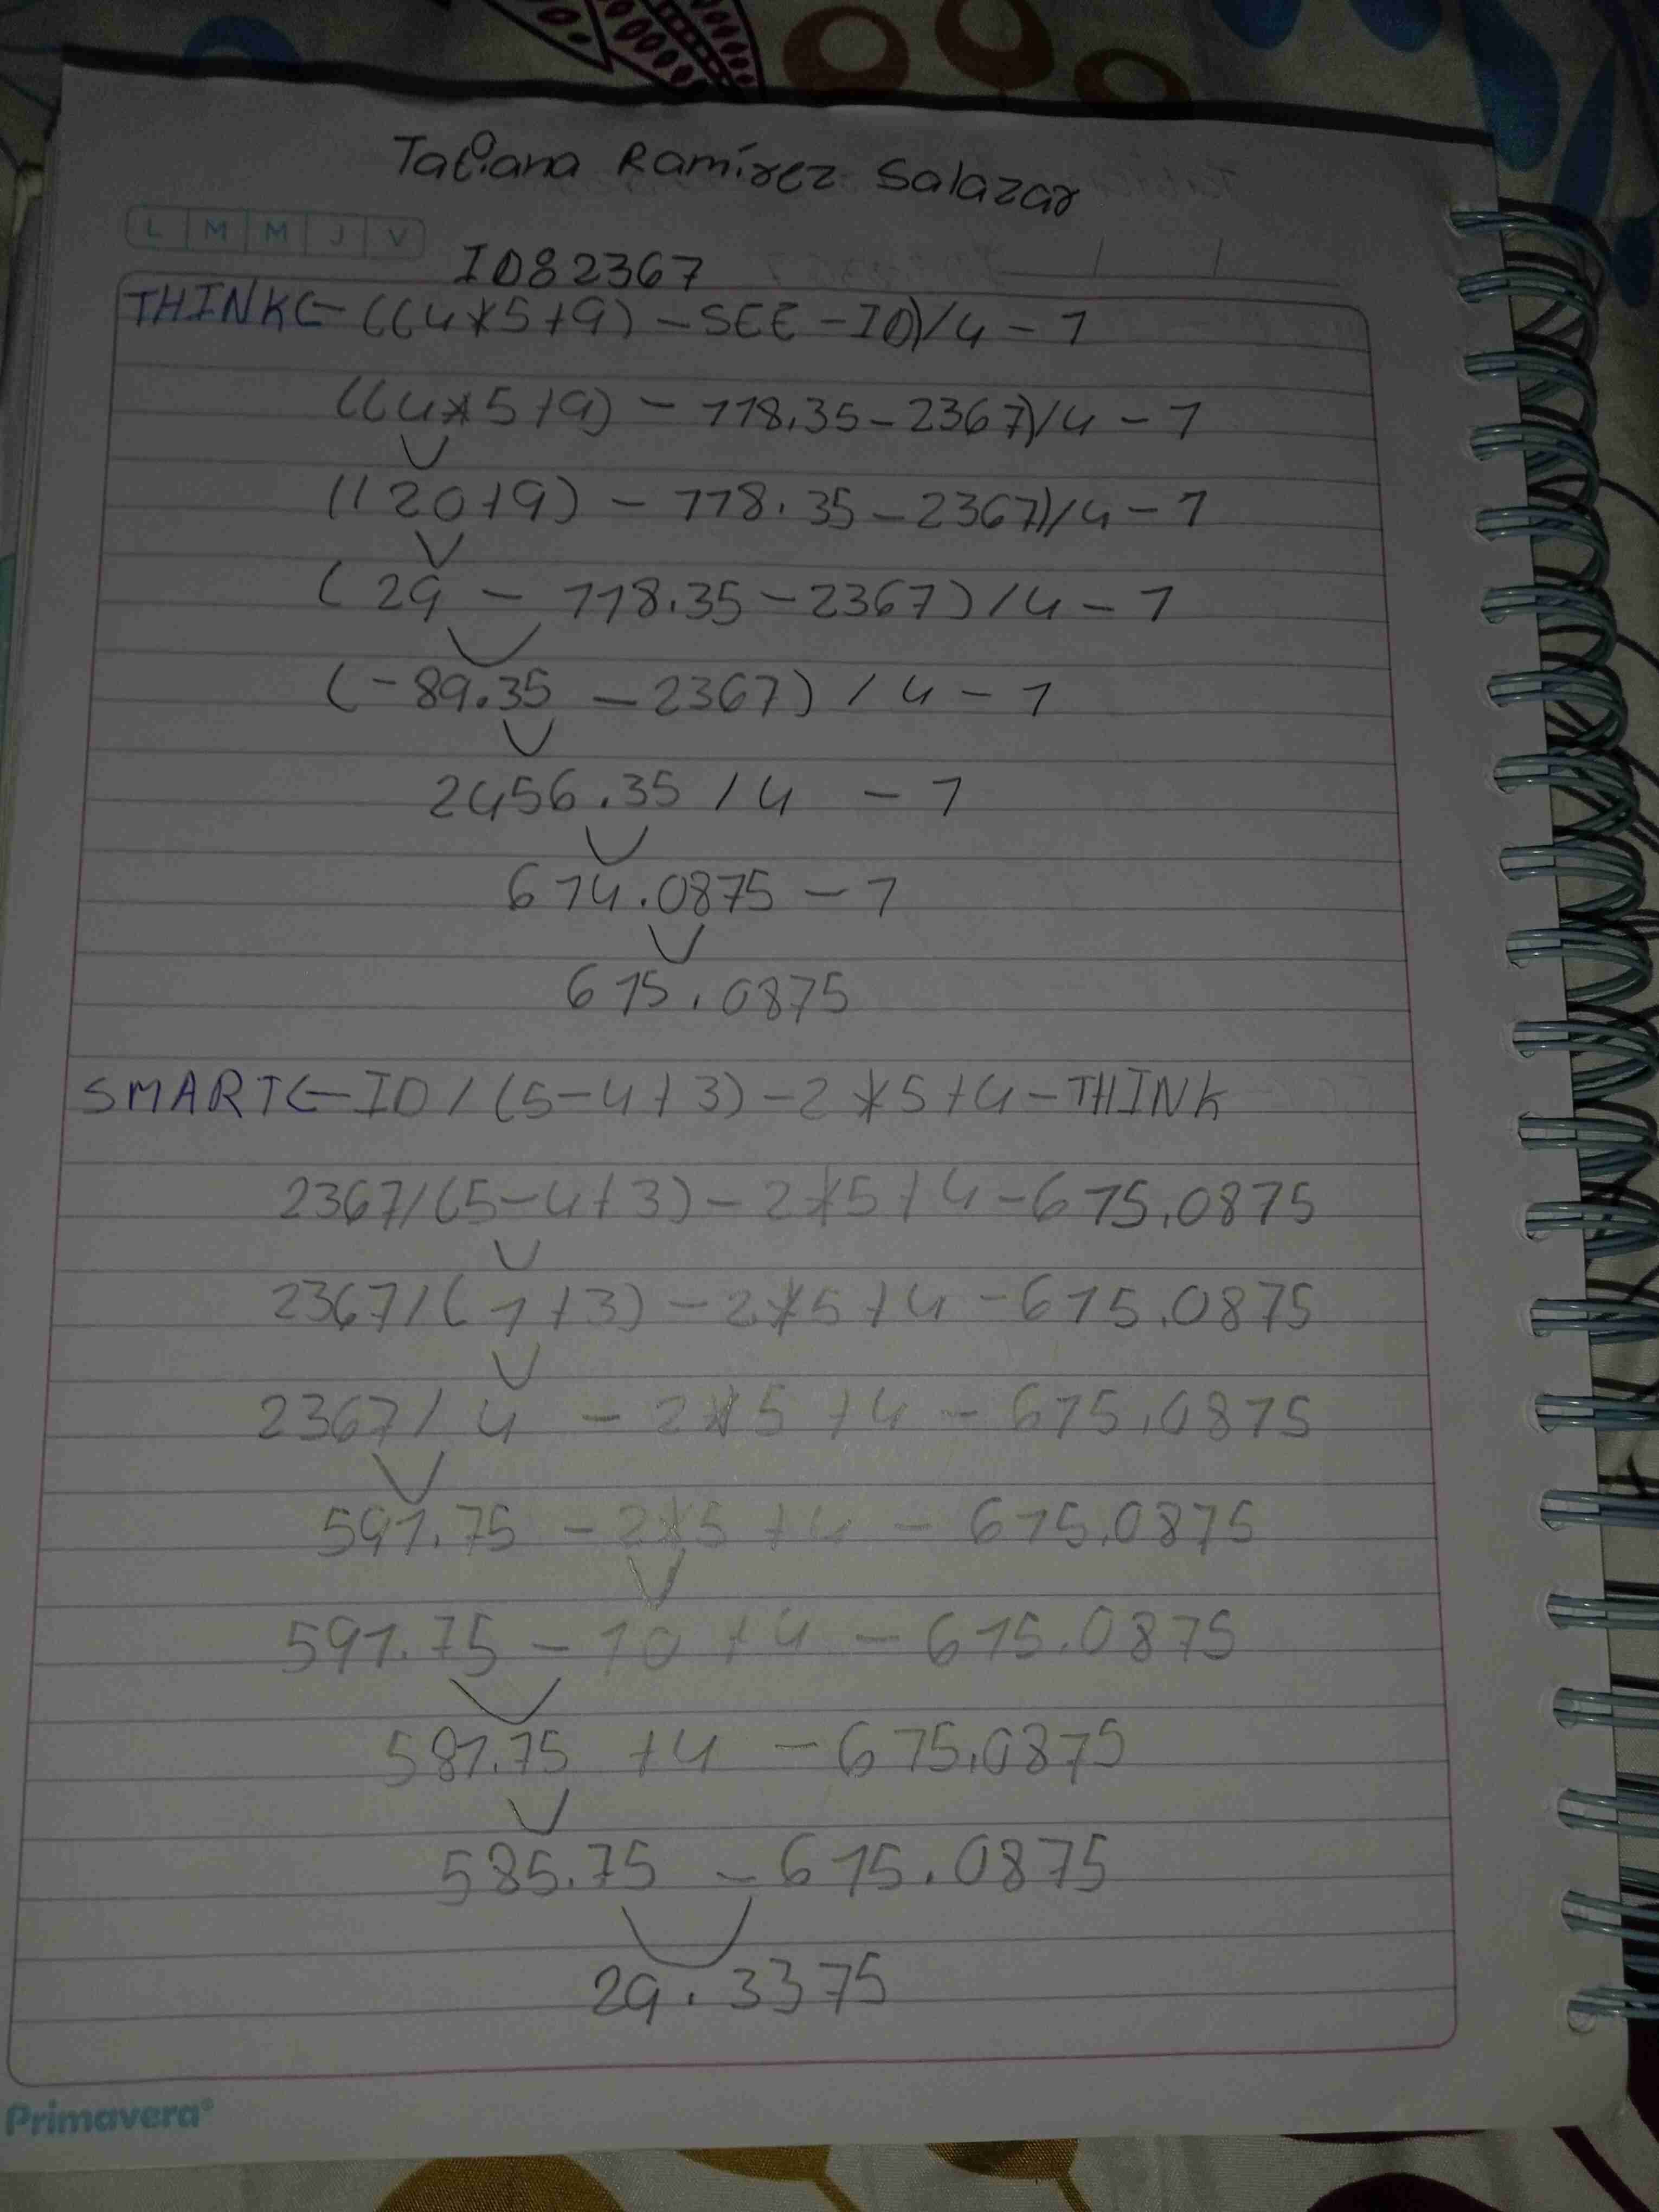 Tatiana Ramírez Salazar
L M M J V
ID82367
THINK←((4*5+9)-SEE-ID)/4-1
((4*5+9)-118.35-2367)/4-1
((20+9)-118.35-2367)/4-1
(29-118.35-2367)/4-1
(-89.35-2367)/4-1
2456.35/4-1
614.0875-1
615.0875
SMART←ID/(5-4+3)-2*5+4-THINK
2367/(5-4+3)-2*5+4-615.0875
2367/(1+3)-2*5+4-615.0875
2367/4-2*5+4-615.0875
591.75-2*5+4-615.0875
591.75-10+4-615.0875
581.75+4-615.0875
585.75-615.0875
29.3375
Primavera®